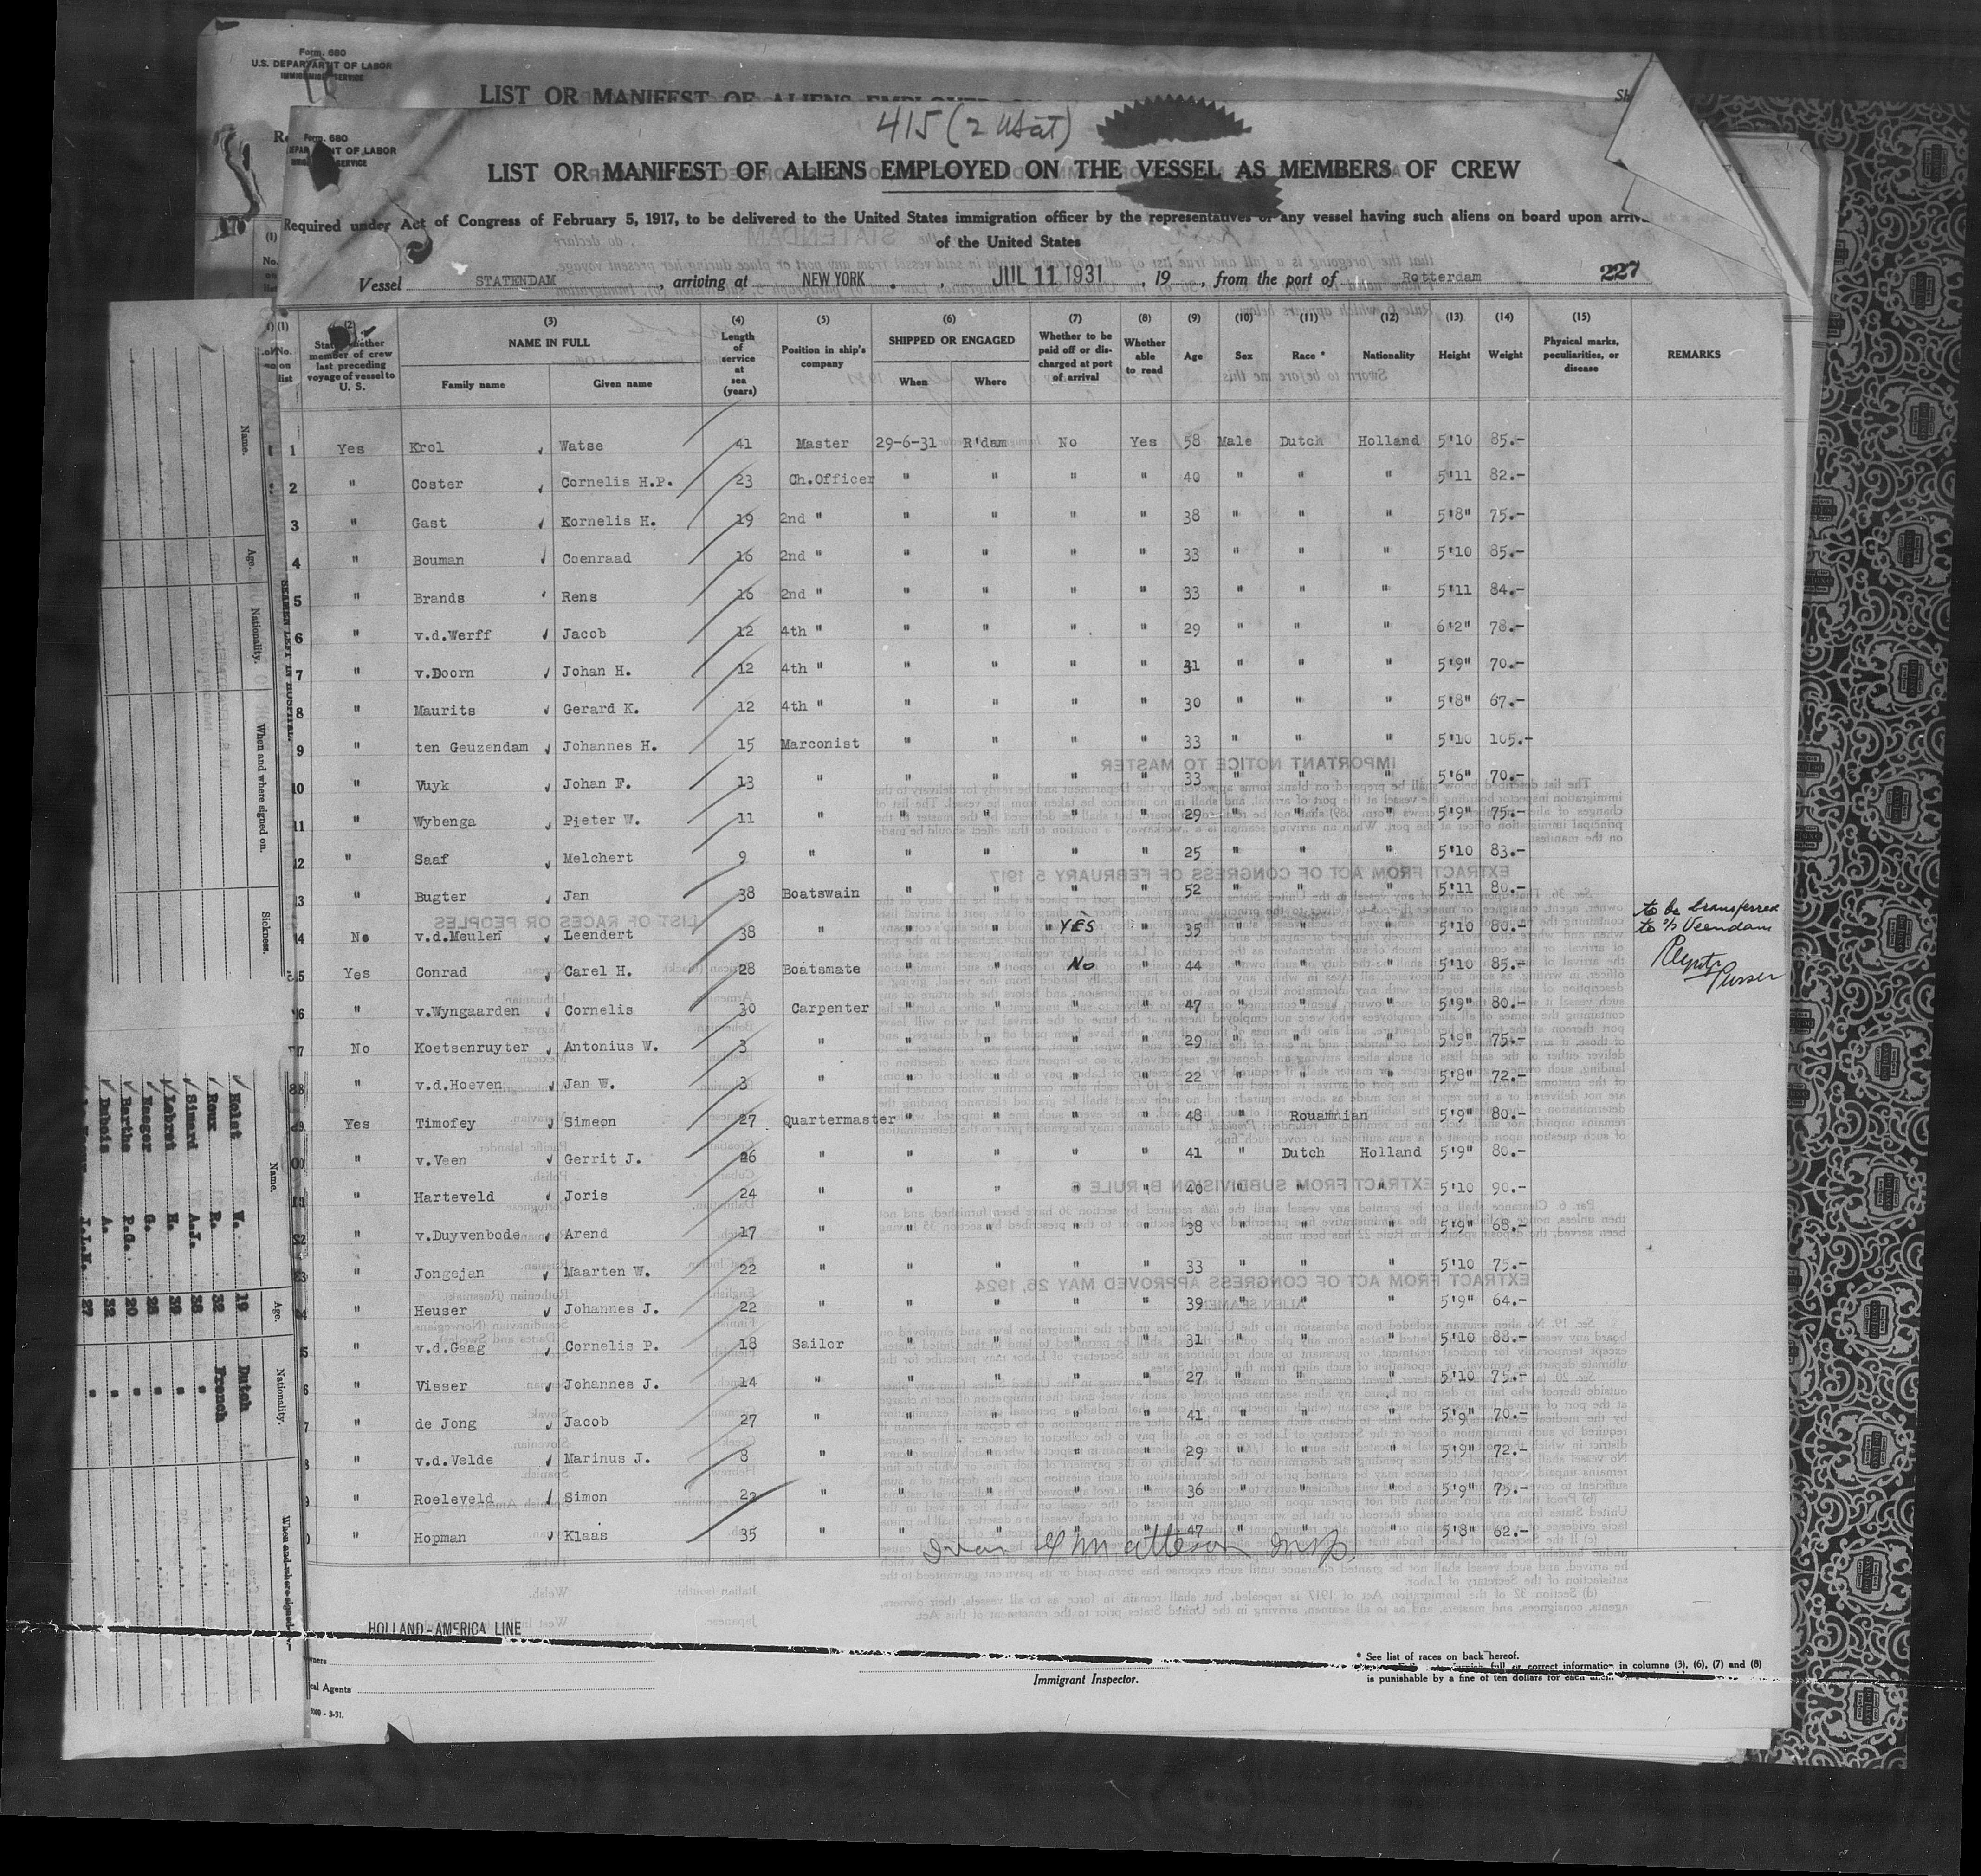 Form. 680
U.S. DEPARTMENT OF LABOR
IMMIGRATION SERVICE
LIST OR MANIFEST OF ALIENS EMPLOYED
Form. 680
NT OF LABOR
SERVICE
415 (2
LIST OR MANIFEST OF ALIENS EMPLOYED ON THE VESSEL AS MEMBERS OF CREW
Required under Act of Congress of February 5, 1917, to be delivered to the United States immigration officer by the representatives of any vessel having such aliens on board upon arriv
of the United States
Vessel STATENDAM , arriving at NEW YORK , JUL 11 1931 , 19 , from the port of Rotterdam 227
(1) (2) (3) (4) (5) (6) (7) (8) (9) (10) (11) (12) (13) (14) (15)
No. on list | State whether member of crew last preceding voyage of vessel to U. S. | NAME IN FULL | Family name | Given name | Length of service at sea (years) | Position in ship's company | SHIPPED OR ENGAGED | When | Where | Whether to be paid off or discharged at port of arrival | Whether able to read | Age | Sex | Race * | Nationality | Height | Weight | Physical marks, peculiarities, or disease | REMARKS
1 Yes Krol Watse 41 Master 29-6-31 R'dam No Yes 58 Male Dutch Holland 5'10 85.-
2 " Coster Cornelis H.P. 23 Ch.Officer " " " " 40 " " " 5'11 82.-
3 " Gast Kornelis H. 19 2nd " " " " " 38 " " " 5'8" 75.-
4 " Bouman Coenraad 16 2nd " " " " " 33 " " " 5'10 85.-
5 " Brands Rens 16 2nd " " " " " 33 " " " 5'11 84.-
6 " v.d.Werff Jacob 12 4th " " " " " 29 " " " 6'2" 78.-
7 " v.Doorn Johan H. 12 4th " " " " " 31 " " " 5'9" 70.-
8 " Maurits Gerard K. 12 4th " " " " " 30 " " " 5'8" 67.-
9 " ten Geuzendam Johannes H. 15 Marconist " " " " 33 " " " 5'10 105.-
10 " Vuyk Johan F. 13 " " " " " 33 " " " 5'6" 70.-
11 " Wybenga Pieter W. 11 " " " " " 29 " " " 5'9" 75.-
12 " Saaf Melchert 9 " " " " " 25 " " " 5'10 83.-
13 " Bugter Jan 38 Boatswain " " " " 52 " " " 5'11 80.-
14 No v.d.Meulen Leendert 38 " " " " YES " 35 " " " 5'10 80.- to be transferred to s/s Veendam
15 Yes Conrad Carel H. 28 Boatsmate " " No " 44 " " " 5'10 85.- Purser
16 " v.Wyngaarden Cornelis 30 Carpenter " " " " 47 " " " 5'9" 80.-
17 No Koetsenruyter Antonius W. 3 " " " " " 29 " " " 5'9" 75.-
18 " v.d.Hoeven Jan W. 3 " " " " " 22 " " " 5'8" 72.-
19 Yes Timofey Simeon 27 Quartermaster " " " " 48 " Rouamnian 5'9" 80.-
20 " v.Veen Gerrit J. 26 " " " " " 41 " Dutch Holland 5'9" 80.-
21 " Harteveld Joris 24 " " " " " 40 " " " 5'10 90.-
22 " v.Duyvenbode Arend 17 " " " " " 38 " " " 5'9" 68.-
23 " Jongejan Maarten W. 22 " " " " " 33 " " " 5'10 75.-
4 " Heuser Johannes J. 22 " " " " " 39 " " " 5'9" 64.-
5 " v.d.Gaag Cornelis P. 18 Sailor " " " " 31 " " " 5'10 88.-
6 " Visser Johannes J. 14 " " " " " 27 " " " 5'10 75.-
7 " de Jong Jacob 27 " " " " " 41 " " " 5'9" 70.-
8 " v.d.Velde Marinus J. 8 " " " " " 29 " " " 5'9" 72.-
9 " Roeleveld Simon 22 " " " " " 36 " " " 5'9" 75.-
0 " Hopman Klaas 35 " " " " " 47 " " " 5'8" 62.-
Insp.
HOLLAND-AMERICA LINE
wners
cal Agents
Immigrant Inspector.
* See list of races on back hereof.
full or correct information in columns (3), (6), (7) and (8)
is punishable by a fine of ten dollars for each alien
SEAMEN LEFT IN HOSPITAL
Name. Age. Nationality. When and where signed on. Sickness.
Name. Age. Nationality. When and where signed
Holst W. 19 Dutch
Roux R. 32 French
Simard A.J. 38 "
Lebret H. 39 "
Haeger G. 28 "
Barthe P.G. 20 "
Dubois A. 32 "
J.L.M. 27 "